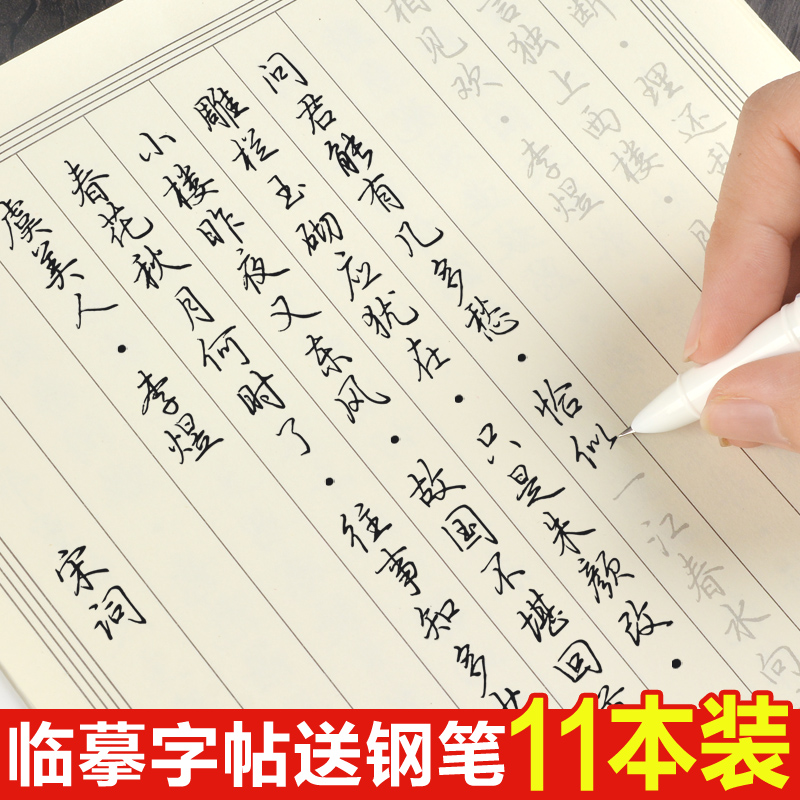 宋词
虞美人·李煜
春花秋月何时了·往事知多少
小楼昨夜又东风·故国不堪回
雕栏玉砌应犹在·只是朱颜改·
问君能有几多愁·恰似一江春水向
相见欢·李煜
言独上西楼·月
断·理还乱
临摹字帖送钢笔11本装